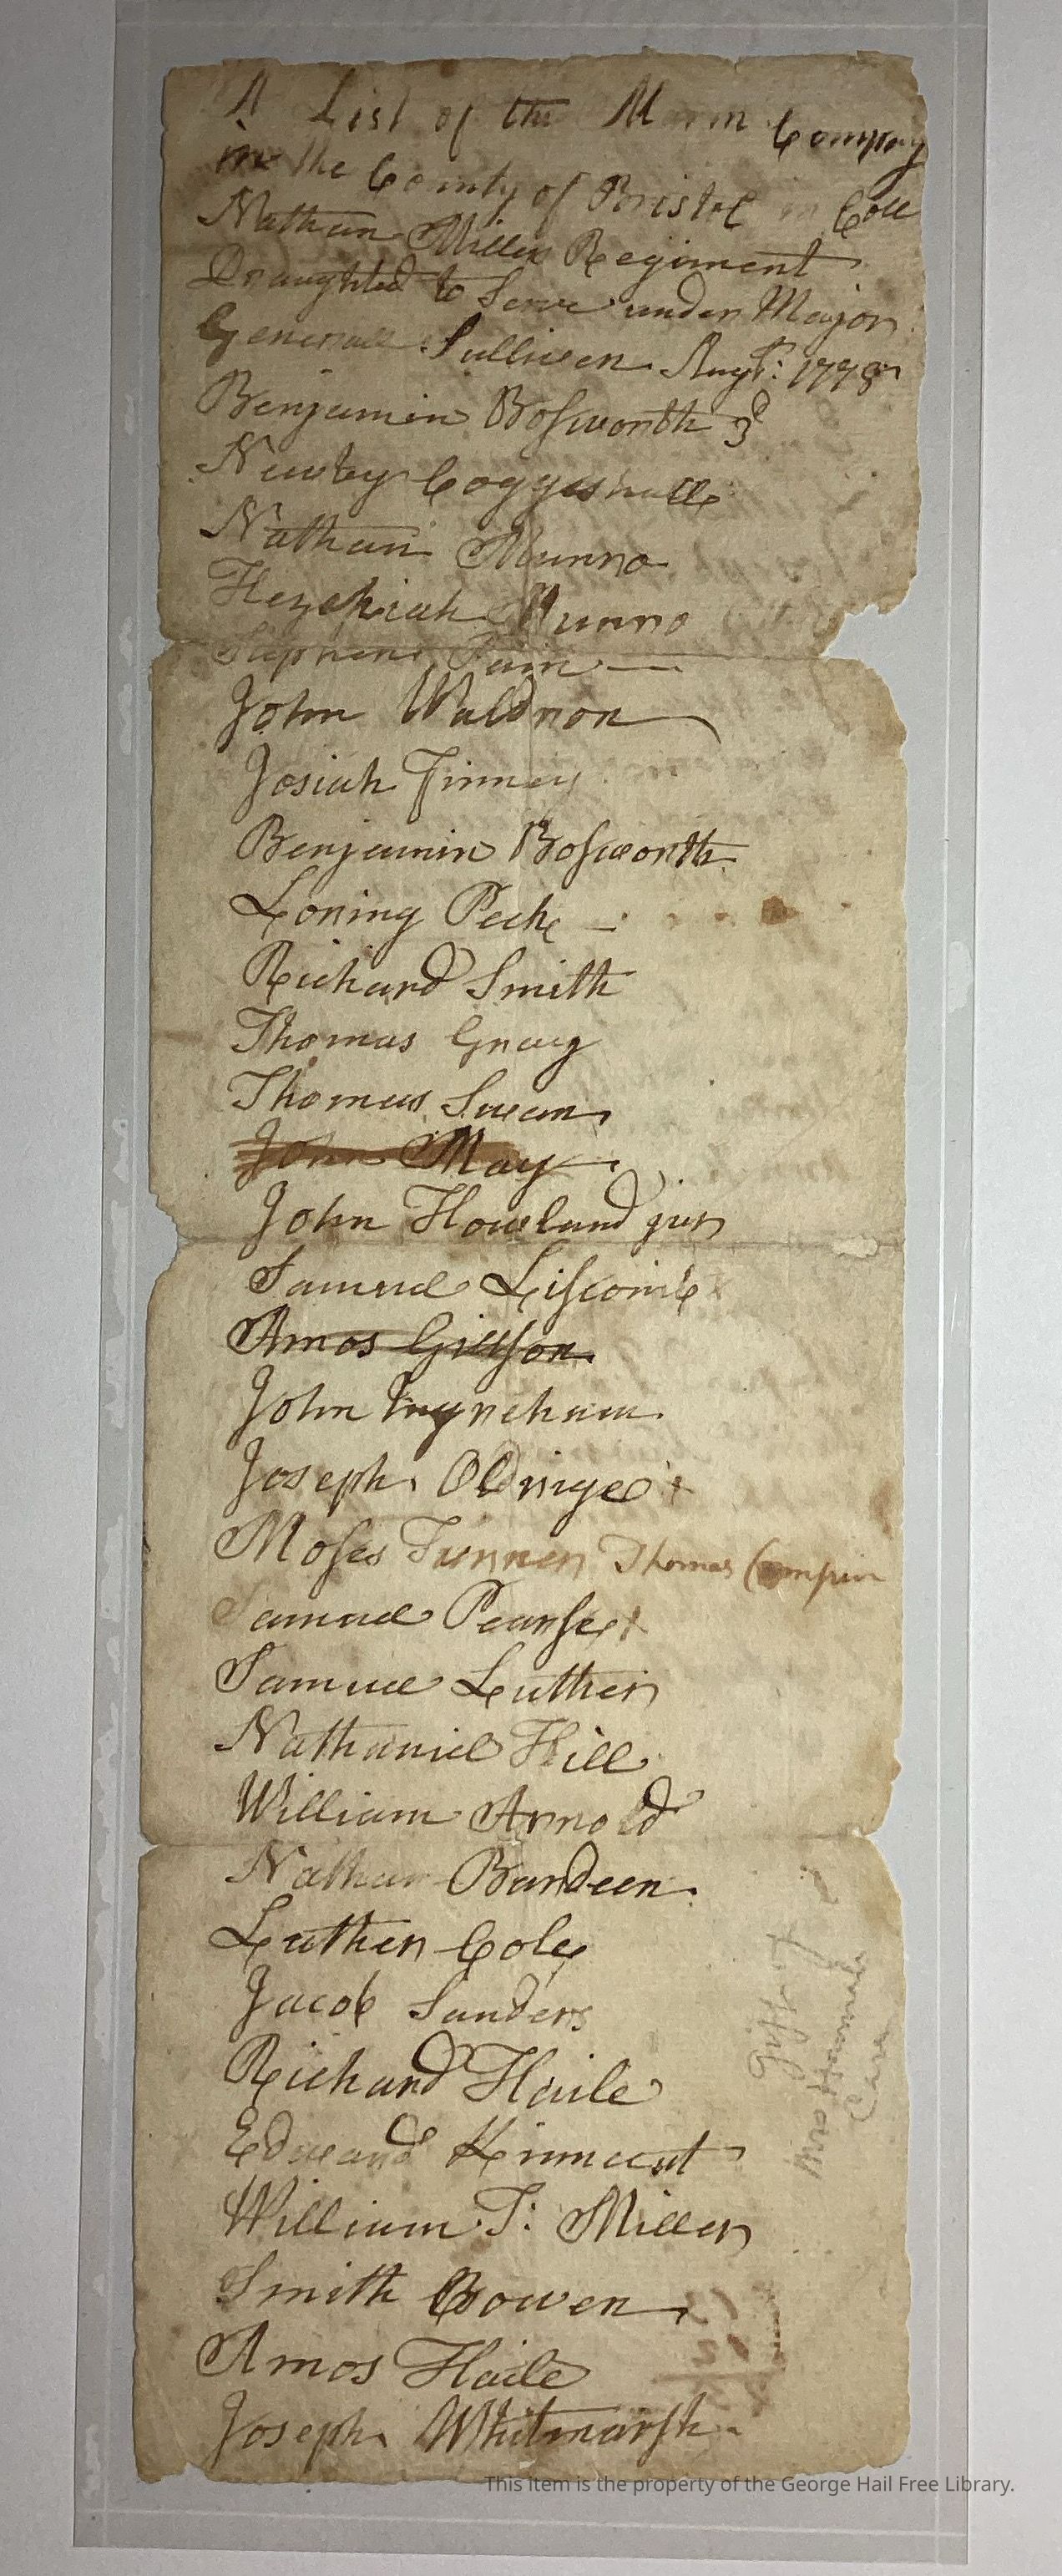 A List of the Alarm Company
in the County of Bristol in Coll
Nathan Miller Regiment
Draughted to Serve under Major
Generall Sulliven Augt: 1778
Benjamin Bosworth 3d
Newby Coggeshall
Nathan Munro
Hezekiah Munro
Stephen Pain
John Waldron
Josiah Finney
Benjamin Bosworth
Loring Peck
Richard Smith
Thomas Gray
Thomas Swan
John May
John Howland jur
Samuel Liscomb
Amos Gillson
John Ingreham
Joseph Oldrige +
Moses Turner Thomas Champlin
Samuel Pearse +
Samuel Luther
Nathaniel Hill
William Arnold
Nathan Bardeen
Luther Cole
Jacob Sanders
Richard Haile
Edward Kinnecut
William T: Miller
Smith Bowen
Amos Haile
Joseph Whitmarsh
Gift of
Mrs Hannah
This item is the property of the George Hail Free Library.